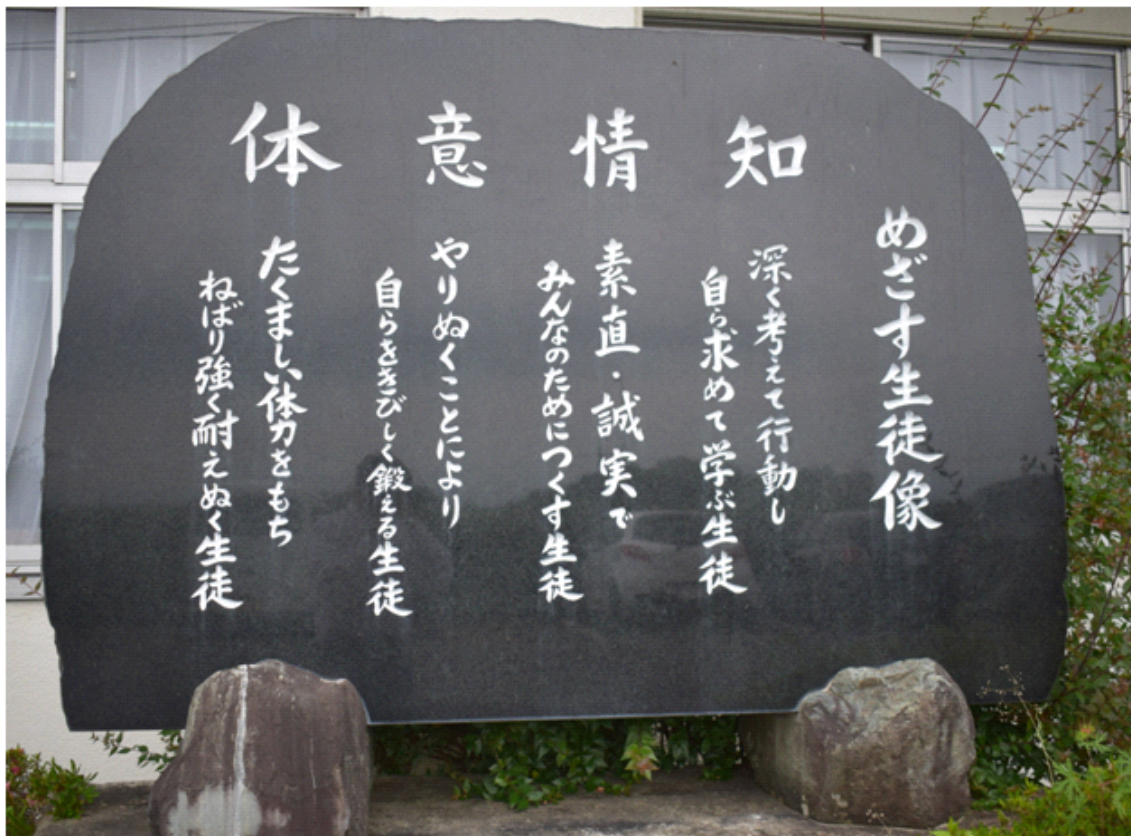 めざす生徒像
知
深く考えて行動し
自ら求めて学ぶ生徒
情
素直・誠実で
みんなのためにつくす生徒
意
やりぬくことにより
自らをきびしく鍛える生徒
体
たくましい体力をもち
ねばり強く耐えぬく生徒